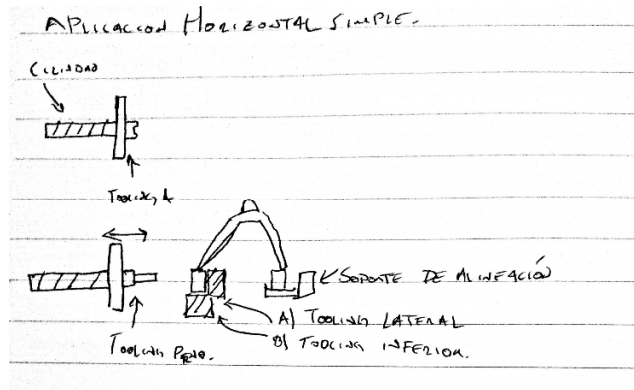 APLICACION HORIZONTAL SIMPLE.
CILINDRO
TOOLING A
SOPORTE DE ALINEACIÓN
A) TOOLING LATERAL
B) TOOLING INFERIOR.
TOOLING